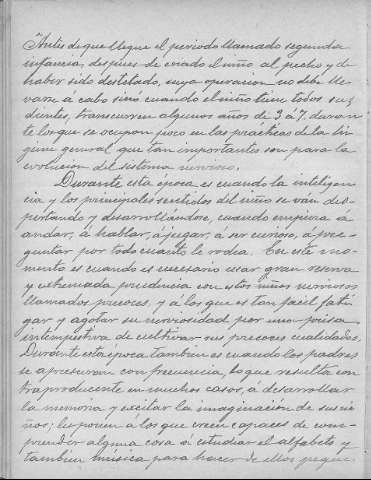 Antes de que llegue el periodo llamado segunda
infancia, despues de criado el niño al pecho y de
haber sido destetado, cuya operacion no debe lle-
varse á cabo sinó cuando el niño tiene todos sus
dientes, transcurren algunos años de 3 á 7. duran-
te los que se ocupan poco en las prácticas de la hi-
giene general que tan importantes son para la
evolucion del sistema nervioso.
Durante esta época es cuando la inteligen-
cia y los principales sentidos del niño se van des-
pertando y desarrollandose, cuando empieza á
andar, á hablar, á jugar, á ser curioso, á pre-
guntar por todo cuanto le rodea. En este mo-
mento es cuando es necesario usar gran reserva
y estremada prudencia con estos niños nerviosos
llamados precoces, y á los que es tan fácil fati-
gar y agotar su nerviosidad por una prisa
intempestiva de cultivar sus precoces cualidades.
Durante esta epoca tambien es cuando los padres
se apresuran con frecuencia, lo que resulta con-
traproducente en muchos casos, á desarrollar
la memoria y excitar la imaginación de sus ni-
ños; les ponen á los que creen capaces de com-
prender alguna cosa á estudiar el alfabeto y
tambien música para hacer de ellos peque-